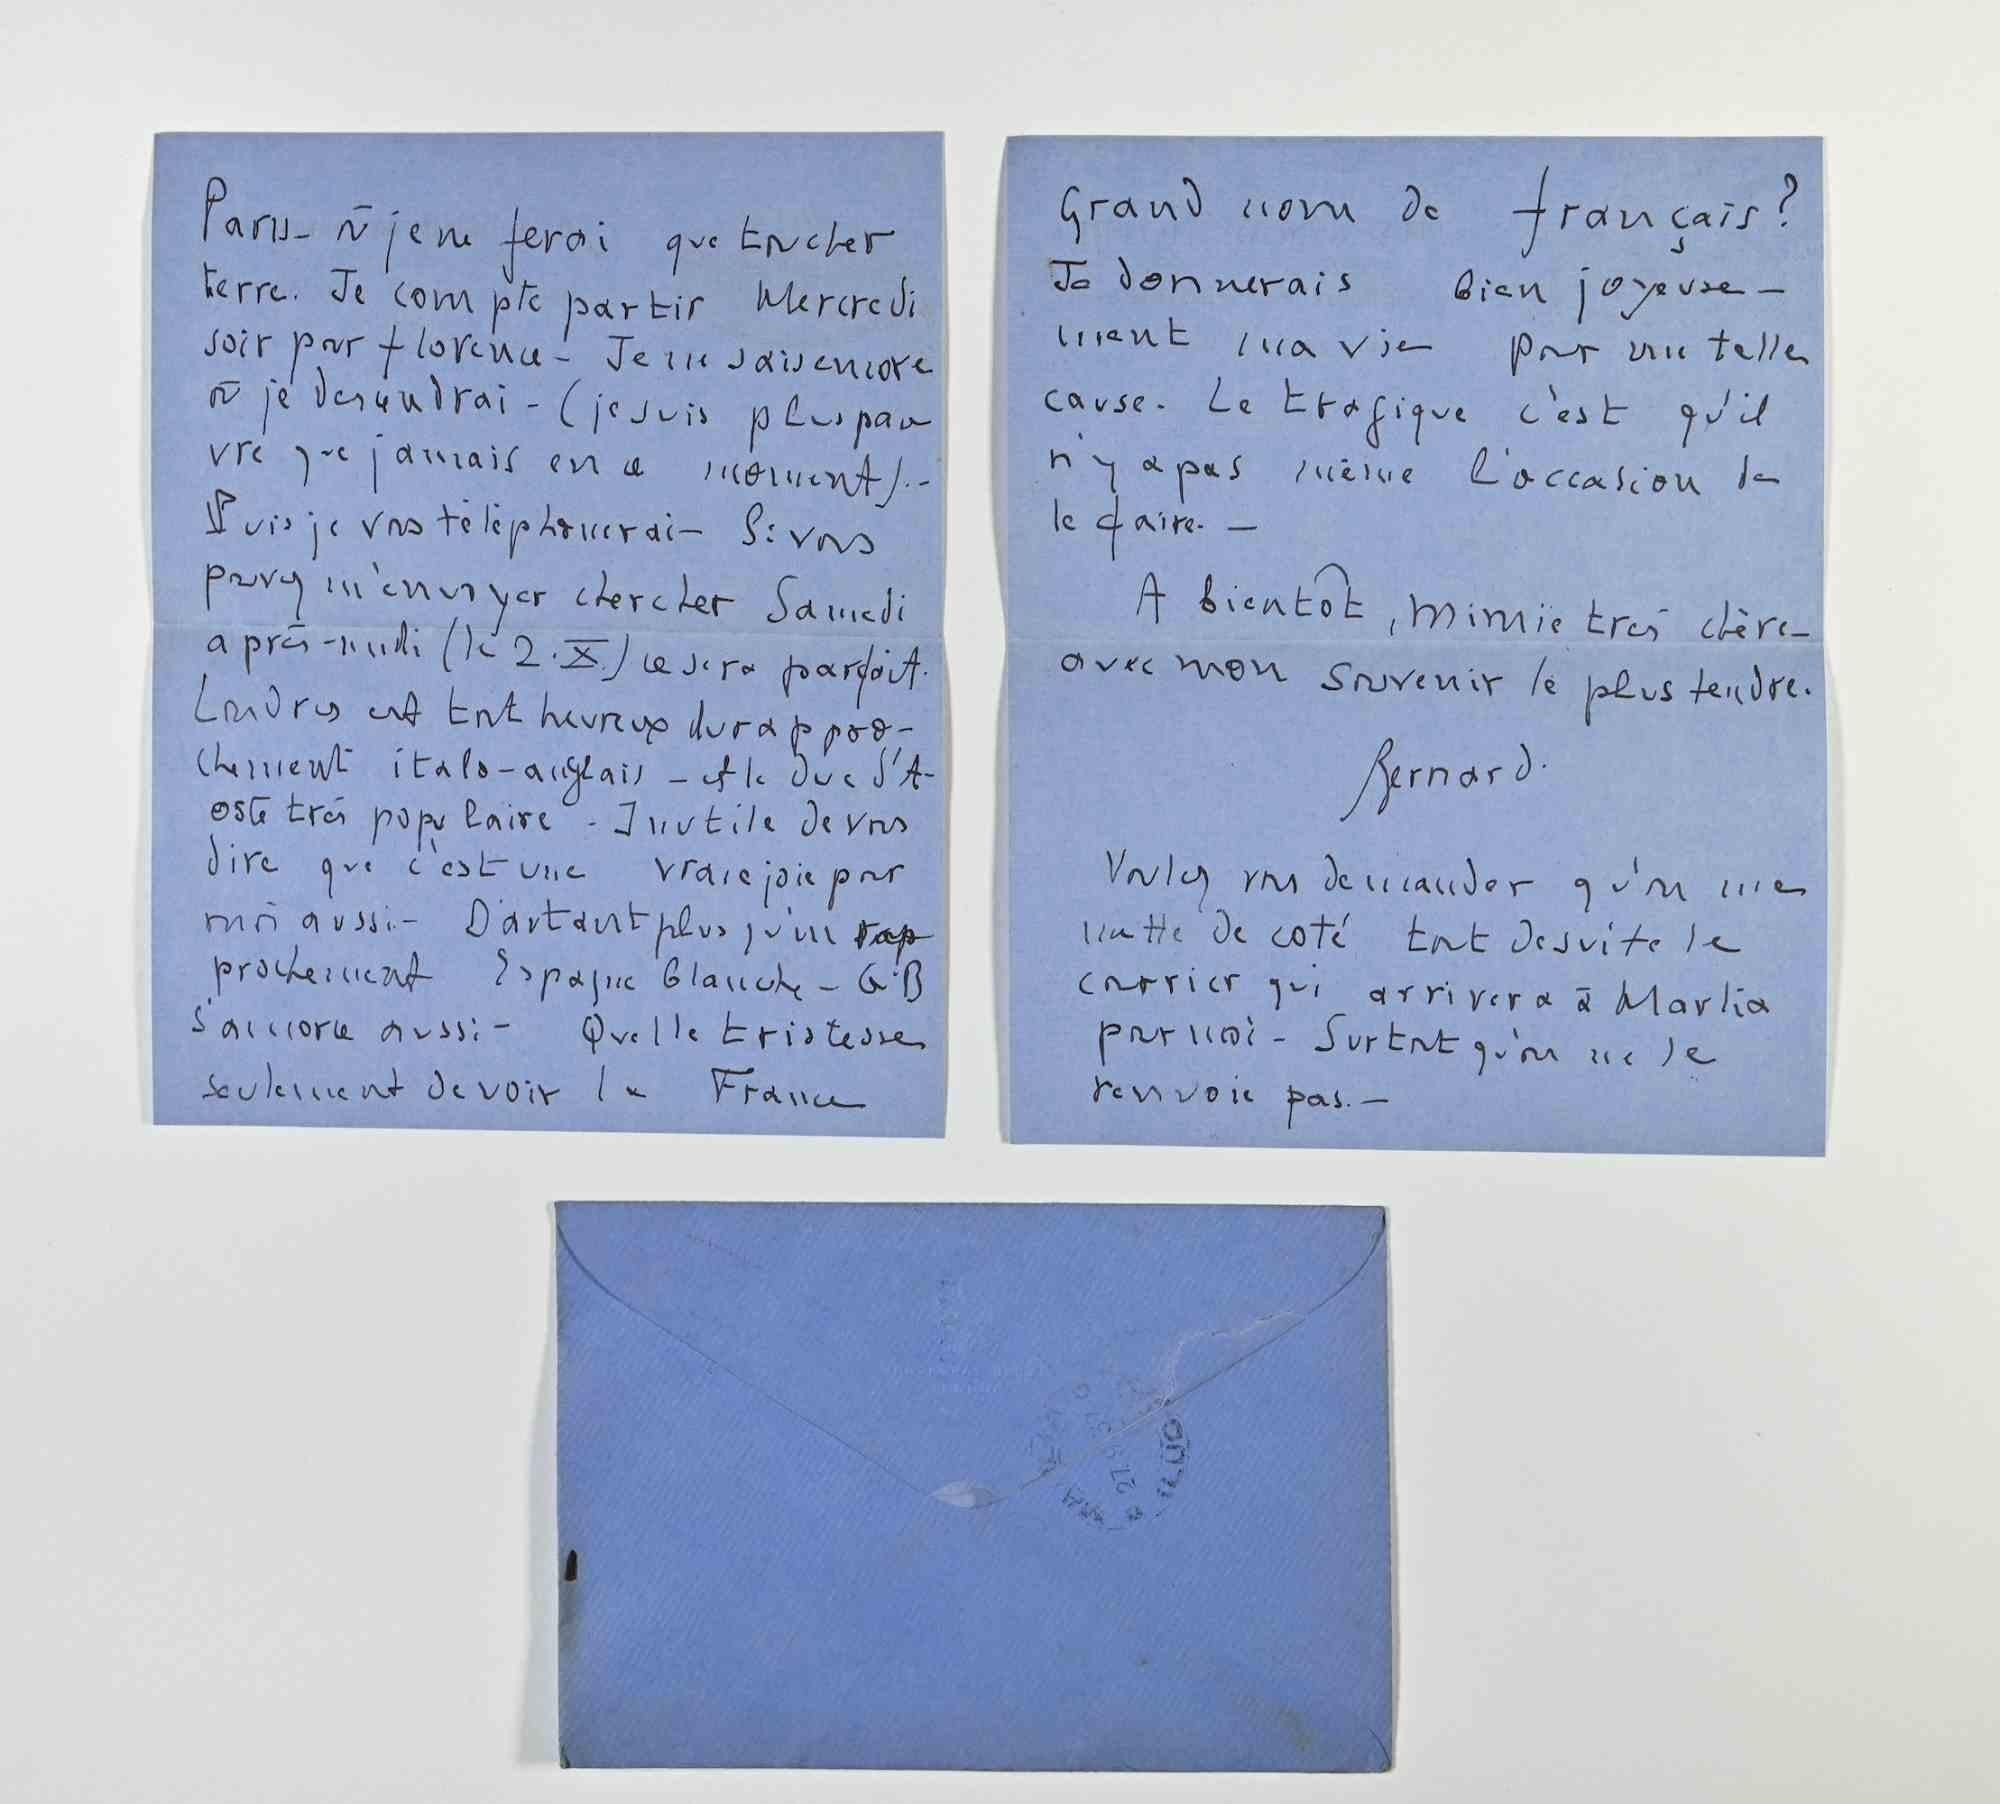 Paris - où je ne ferai que toucher
terre. Je compte partir Mercredi
soir pour Florence - Je ne sais encore
où je descendrai - (je suis plus pau
vre que jamais en ce moment). -
Puis je vous téléphonerai - Si vous
pouvez m'envoyer chercher Samedi
après-midi (le 2.X.) ce sera parfait.
Londres est tout heureux du rappro-
chement italo-anglais - et le Duc d'A-
oste très populaire - Inutile de vous
dire que c'est une vraie joie pour
moi aussi - D'autant plus qu'un rap
prochement Espagne blanche - GB
s'amorce aussi - Quelle tristesse
seulement de voir la France
Grand nom de français?
Je donnerais bien joyeuse-
ment ma vie pour une telle
cause. Le tragique c'est qu'il
n'y a pas même l'occasion de
le faire. -
A bientôt, Mimie très chère -
avec mon souvenir le plus tendre.
Bernard.
Voulez vous demander qu'on me
mette de coté tout de suite le
courrier qui arrivera à Marlia
pour moi - Surtout qu'on ne le
renvoie pas. -
27 9 37